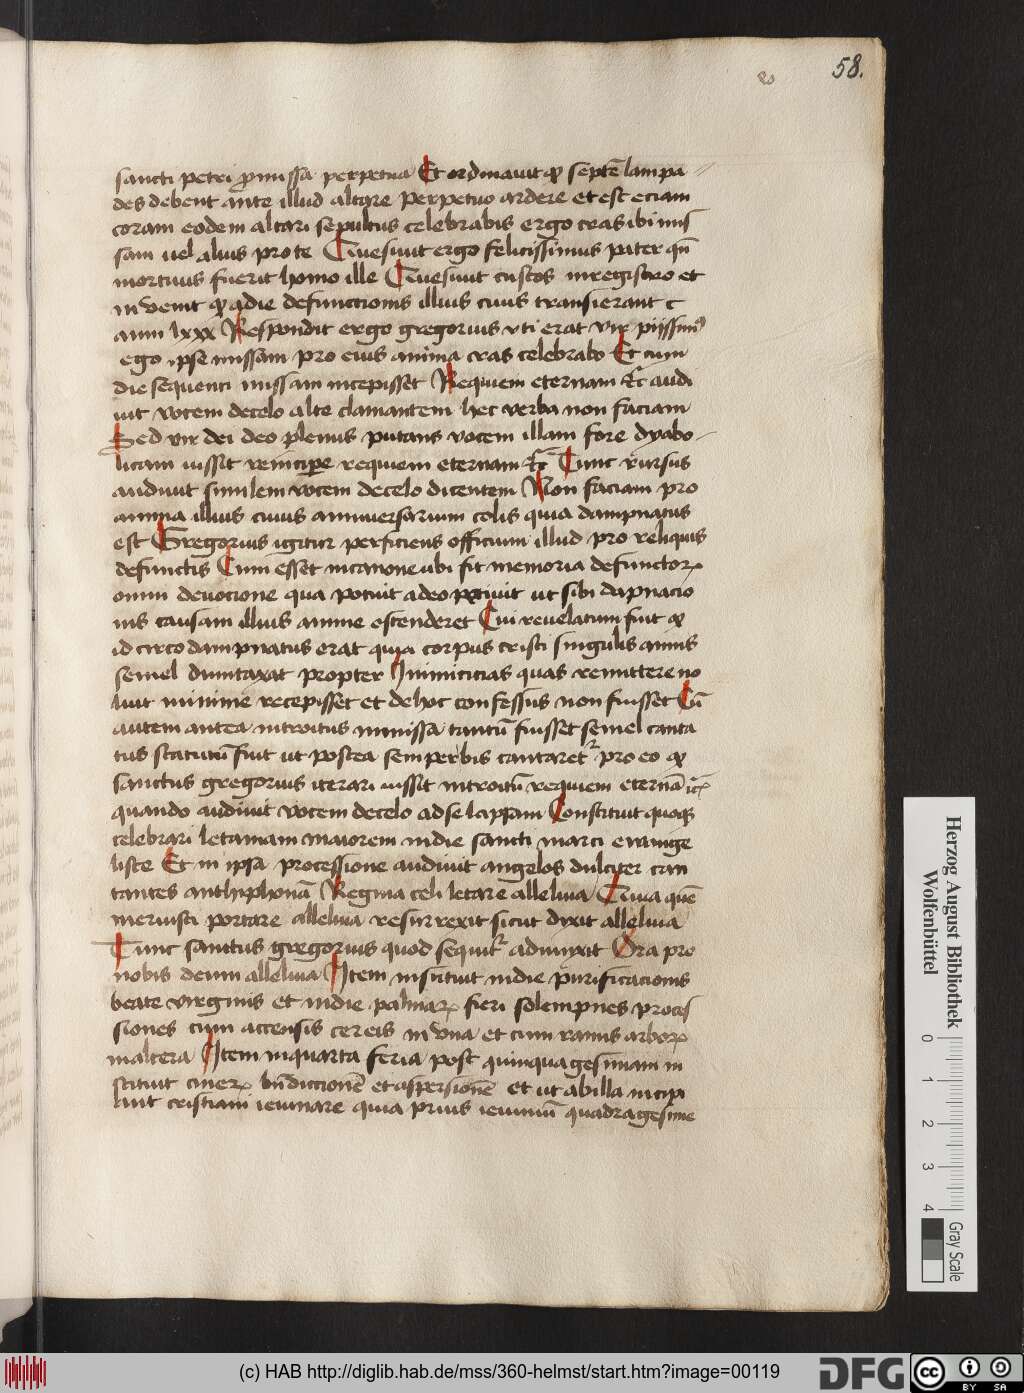 58.
sancti petri ꝓmissa perpetua Et ordinauit qͦ septē lampa
des debent ante illud altare perpetuo ardere et est eciam
coram eodem altari sepultus celebrabis ergo cras ibi mis
sam uel alius pro te Quesiuit ergo felicissimus pater qn̄
mortuus fuerit homo ille Quesiuit custos in registro et
invenit qͦ a die defunctionis illius cuius transierant c
anni lxxx Respondit ergo gregorius vti erat vir pijssimꝰ
ego ipse missam pro eius anima cras celebrabo Et cum
die sequenti missam incepisset Requiem eternam &c̄ audi
uit vocem de celo alte clamantem hec verba non faciam
Sed vir dei deo plenus putans vocem illam fore dyabo
licam iussit reincipere requiem eternam &c̄ Tunc rursus
audiuit similem vocem de celo dicentem Non faciam pro
anima illius cuius anniuersarium colis quia dampnatus
est Gregorius igitur perficiens officium illud pro reliquis
defunctis Cum esset in canone ubi fit memoria defunctoꝝ
omni deuocione qua potuit a deo petiuit ut sibi dāpnacio
nis causam illius anime ostenderet Cui reuelatum fuit qͦ
id circo dampnatus erat quia corpus cristi singulis annis
semel dumtaxat propter Inimicicias quas remittere no
luit minime recepisset et de hoc confessus non fuisset Cū
autem antea introitus in missa tantū fuisset semel canta
tus statutū fuit ut postea semper bis cantaretᷣ pro eo qͦ
sanctus gregorius iterari iussit introitū requiem eternā &c̄
quando audiuit vocem de celo ad se lapsam Constituit quoqꝫ
celebrari letaniam maiorem in die sancti marci ewange
liste Et in ipsa processione audiuit angelos dulciter can
tantes anthiphonā Regina celi letare alleluia Quia quē
meruisti portare alleluia resurrexit sicut dixit alleluia
Tunc sanctus gregorius quod sequitᷣ adiunxit Ora pro
nobis deum alleluia Item instituit in die purificacionis
beate virginis et in die palmaꝝ fieri solempnes proces
siones cum accensis cereis in vna et cum ramis arboꝝ
in altera Item in quarta feria post quinquagesimam in
stituit cineꝝ bn̄diccionē et aspersionē et ut ab illa incipi
ant cristiani ieiunare quia prius ieiuniū quadragesime
Herzog August Bibliothek
Wolfenbüttel
0 1 2 3 4
Gray Scale
(c) HAB http://diglib.hab.de/mss/360-helmst/start.htm?image=00119
DFG
cc BY SA